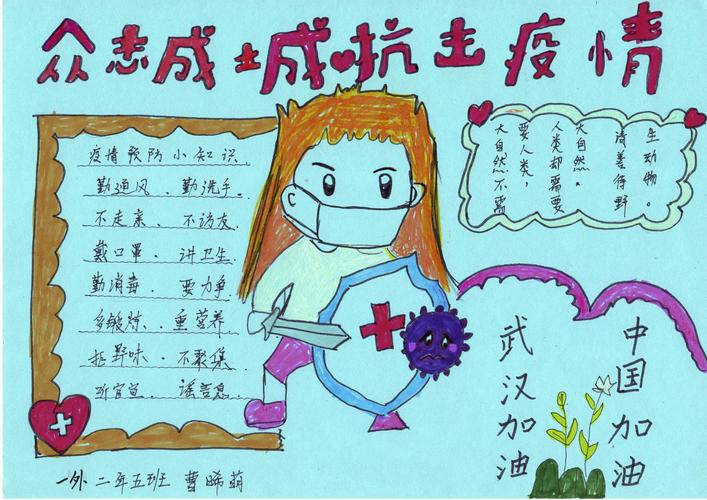 众志成城抗击疫情
疫情预防小知识
勤通风、勤洗手。
不走亲、不访友
戴口罩、讲卫生
勤消毒、要力争
多锻炼、重营养
拒野味、不聚集
听官宣、谣言息
大自然不需
要人类,
人类却需要
大自然。
请善待野
生动物。
武汉加油
中国加油
一外 二年五班 曹晞萌